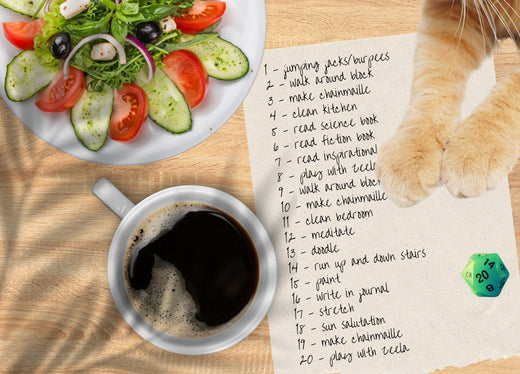 1 - jumping jacks/burpees
2 - walk around block
3 - make chainmaille
4 - clean kitchen
5 - read science book
6 - read fiction book
7 - read inspirational
8 - play with Zeela
9 - walk around block
10 - make chainmaille
11 - clean bedroom
12 - meditate
13 - doodle
14 - run up and down stairs
15 - paint
16 - write in journal
17 - stretch
18 - sun salutation
19 - make chainmaille
20 - play with Zeela
14
20
8